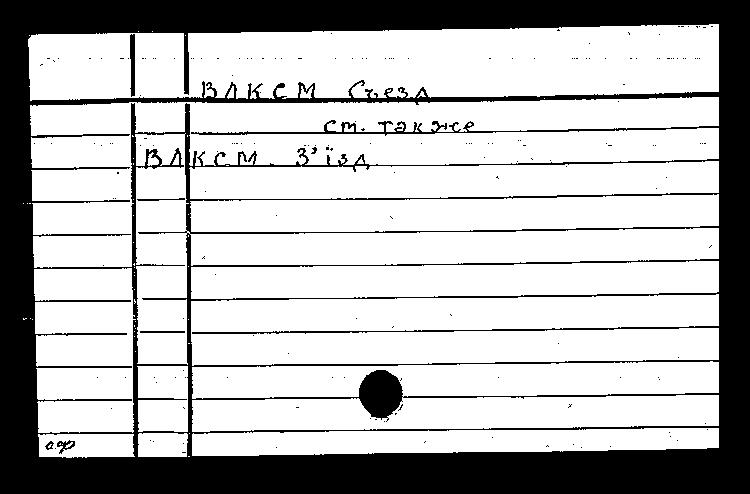 ВЛКСМ Съезд
см. также
ВЛКСМ. З'їзд